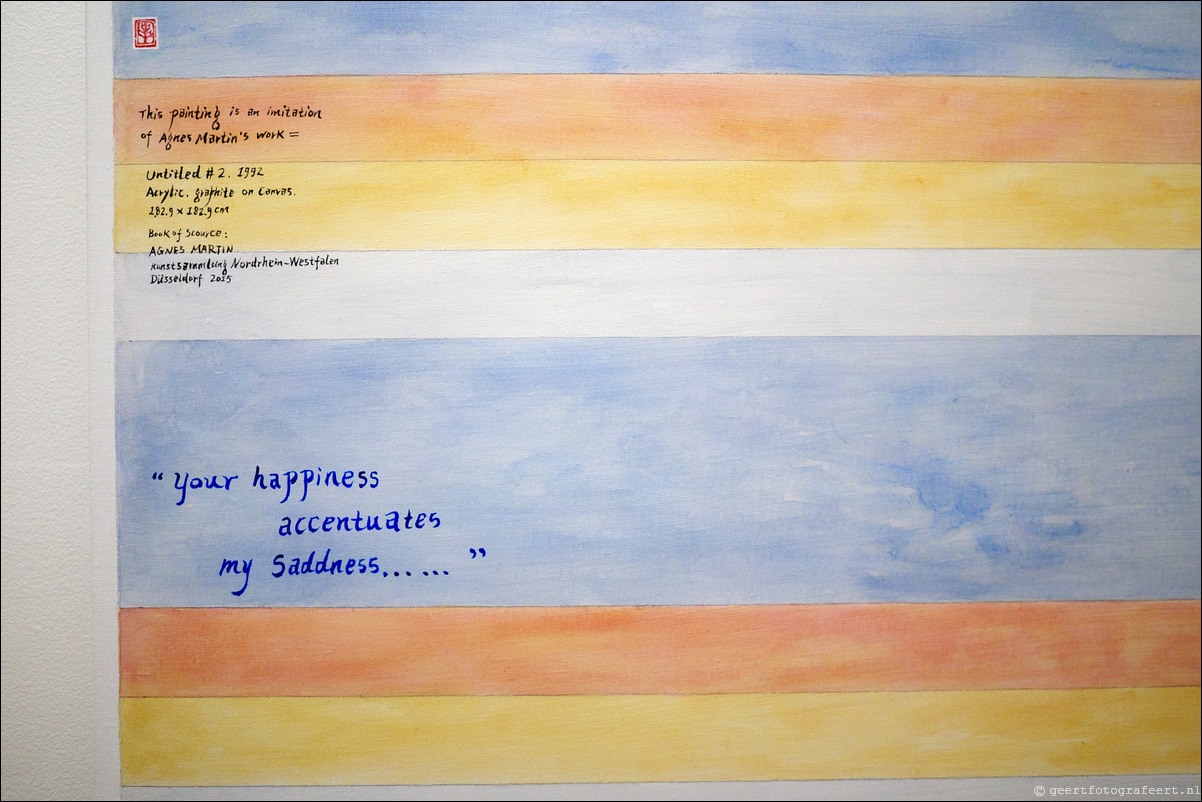 This painting is an imitation
of Agnes Martin's work =
Untitled # 2. 1992
Acrylic. graphite on Canvas.
182.9 x 182.9 cm
Book of Scource :
AGNES MARTIN
Kunstsammlung Nordrhein-Westfalen
Düsseldorf 2015
“ your happiness
accentuates
my Saddness... ... ”
© geertfotografeert.nl